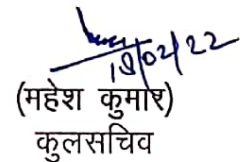 18/02/22
(महेश कुमार)
कुलसचिव